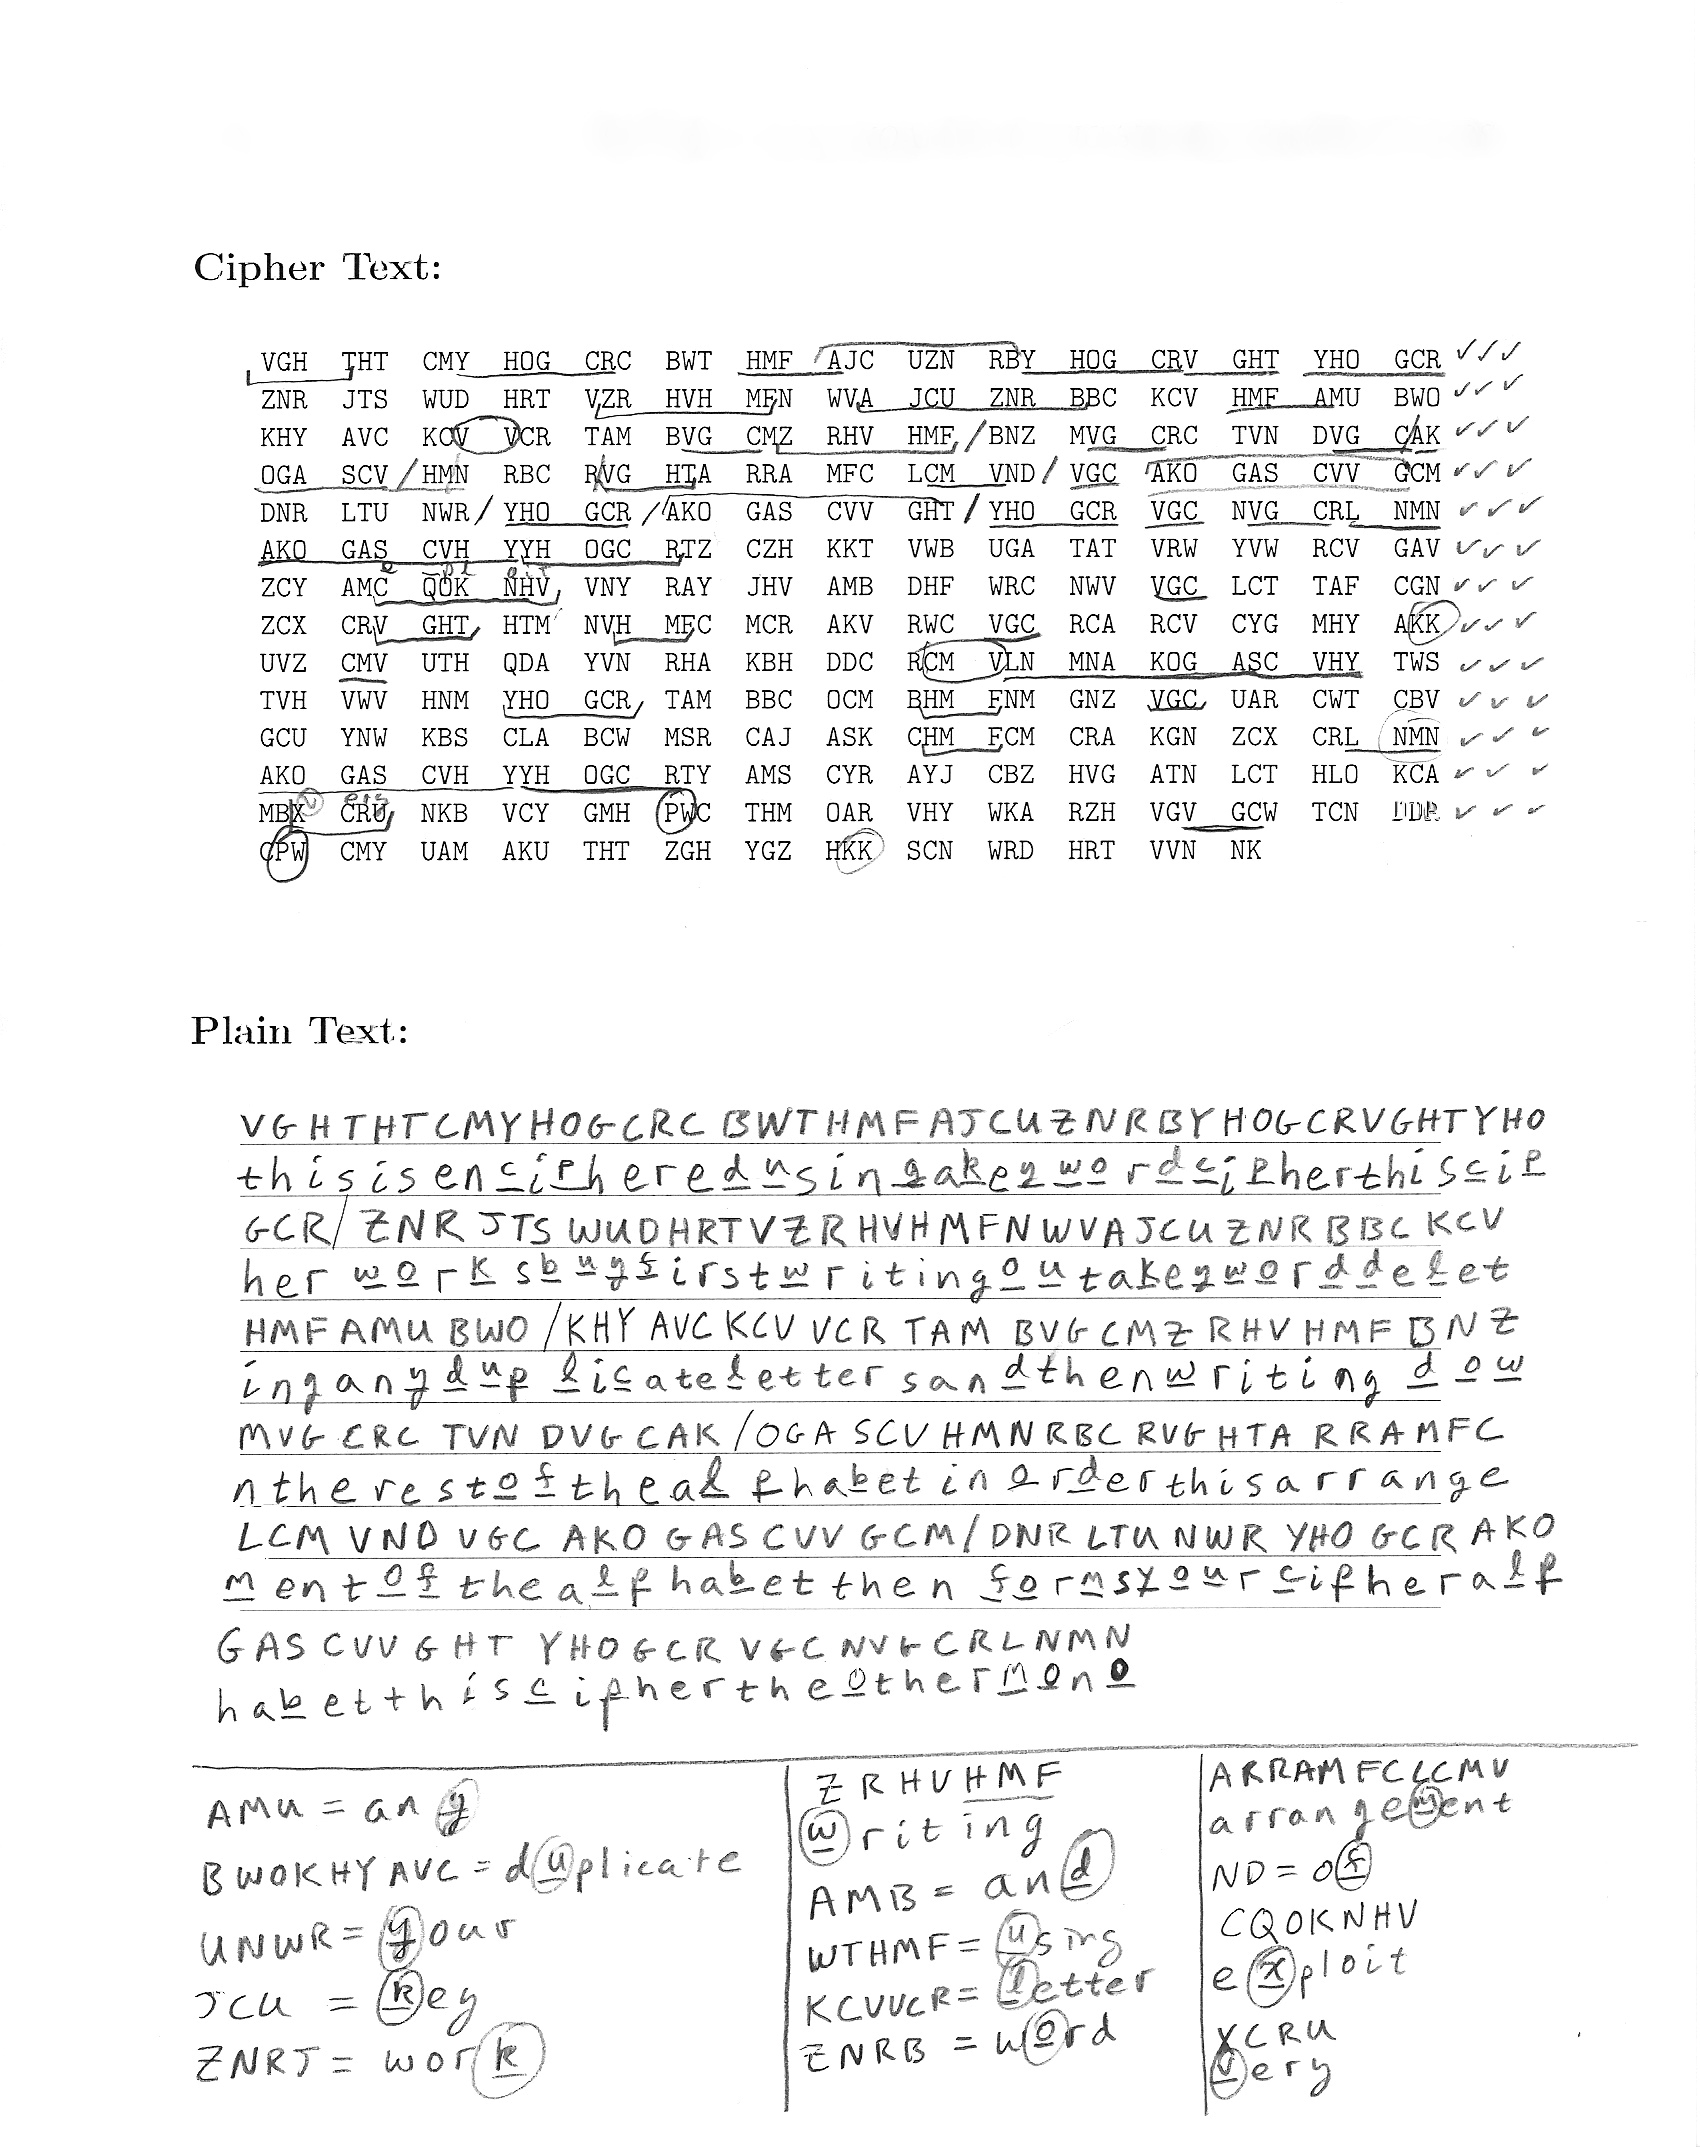 Cipher Text:
VGH THT CMY HOG CRC BWT HMF AJC UZN RBY HOG CRV GHT YHO GCR
ZNR JTS WUD HRT VZR HVH MFN WVA JCU ZNR BBC KCV HMF AMU BWO
KHY AVC KCV VCR TAM BVG CMZ RHV HMF/BNZ MVG CRC TVN DVG CAK
OGA SCV/HMN RBC RVG HTA RRA MFC LCM VND/VGC AKO GAS CVV GCM
DNR LTU NWR/YHO GCR/AKO GAS CVV GHT/YHO GCR VGC NVG CRL NMN
AKO GAS CVH YYH OGC RTZ CZH KKT VWB UGA TAT VRW YVW RCV GAV
e pl oit
ZCY AMC QOK NHV VNY RAY JHV AMB DHF WRC NWV VGC LCT TAF CGN
ZCX CRV GHT HTM NVH MFC MCR AKV RWC VGC RCA RCV CYG MHY AKK
UVZ CMV UTH QDA YVN RHA KBH DDC RCM VLN MNA KOG ASC VHY TWS
TVH VWV HNM YHO GCR TAM BBC OCM BHM FNM GNZ VGC UAR CWT CBV
GCU YNW KBS CLA BCW MSR CAJ ASK CHM FCM CRA KGN ZCX CRL NMN
AKO GAS CVH YYH OGC RTY AMS CYR AYJ CBZ HVG ATN LCT HLO KCA
v ery
MBX CRU NKB VCY GMH PWC THM OAR VHY WKA RZH VGV GCW TCN DDR
CPW CMY UAM AKU THT ZGH YGZ HKK SCN WRD HRT VVN NK
Plain Text:
VGHTHTCMYHOGCRC BWTHMFAJCUZNRBYHOGCRVGHTYHO
thisisencipheredusingakeywordcipherthiscip
GCR/ZNR JTS WUDHRTVZRHVHMFNWVAJCUZNRBBCKCV
her worksbuyfirstwritingoutakeyworddelet
HMFAMU BWO/KHY AVCKCV VCR TAM BVGCMZRHVHMFBNZ
inganydup licateletter sandthenwriting dow
MVG CRC TVN DVGCAK/OGA SCVHMNRBCRVGHTARRAMFC
ntherestofthealphabetinorderthisarrange
LCM VND VGC AKO GAS CVV GCM/DNR LTU NWR YHO GCR AKO
mentofthealphabetthen formsyourcipheralp
GAS CVV GHT YHOGCR VGC NVGCRLNMN
habetthisciphertheothermono
AMU = any
BWOKHYAVC = duplicate
UNWR = your
JCU = key
ZNRJ = work
ZRHVHMF
writing
AMB = and
WTHMF = using
KCVVCR = letter
ZNRB = word
ARRAMFCLCMV
arrangement
ND = of
CQOKNHV
exploit
XCRU
very